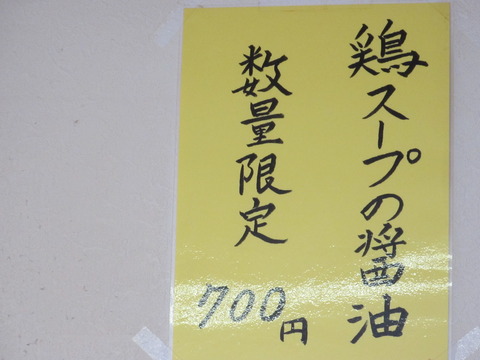 鶏スープの醤油
数量限定
700円